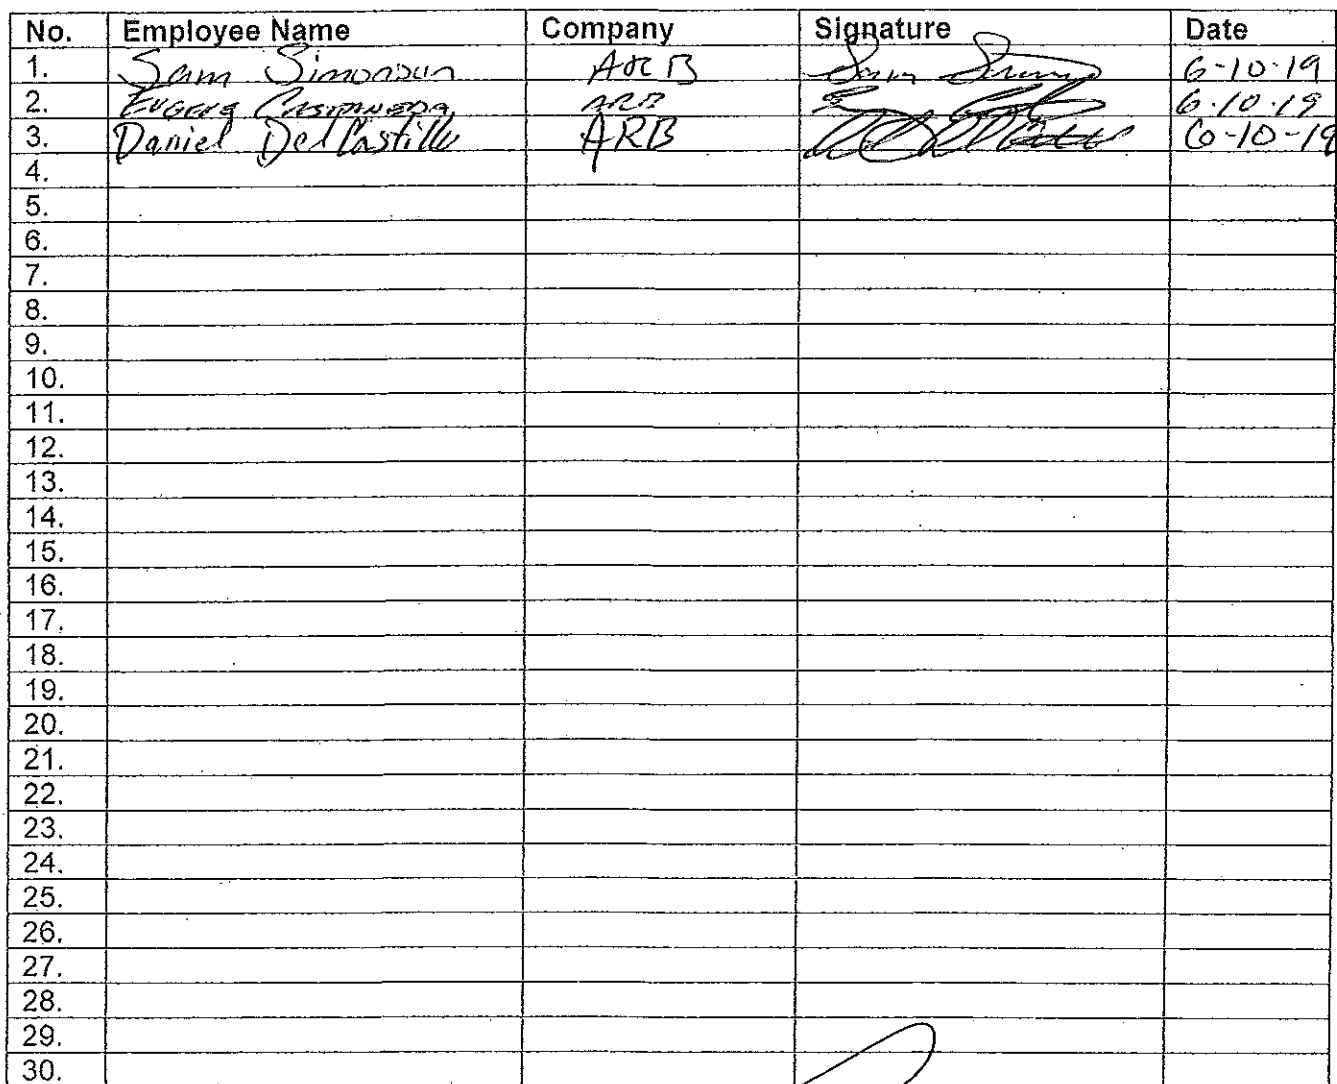 No. Employee Name Company Signature Date
1. Sam Simonson ARB 6-10-19
2. Castaneda ARB 6.10.19
3. Daniel Del Castillo ARB 6-10-19
4.
5.
6.
7.
8.
9.
10.
11.
12.
13.
14.
15.
16.
17.
18.
19.
20.
21.
22.
23.
24.
25.
26.
27.
28.
29.
30.